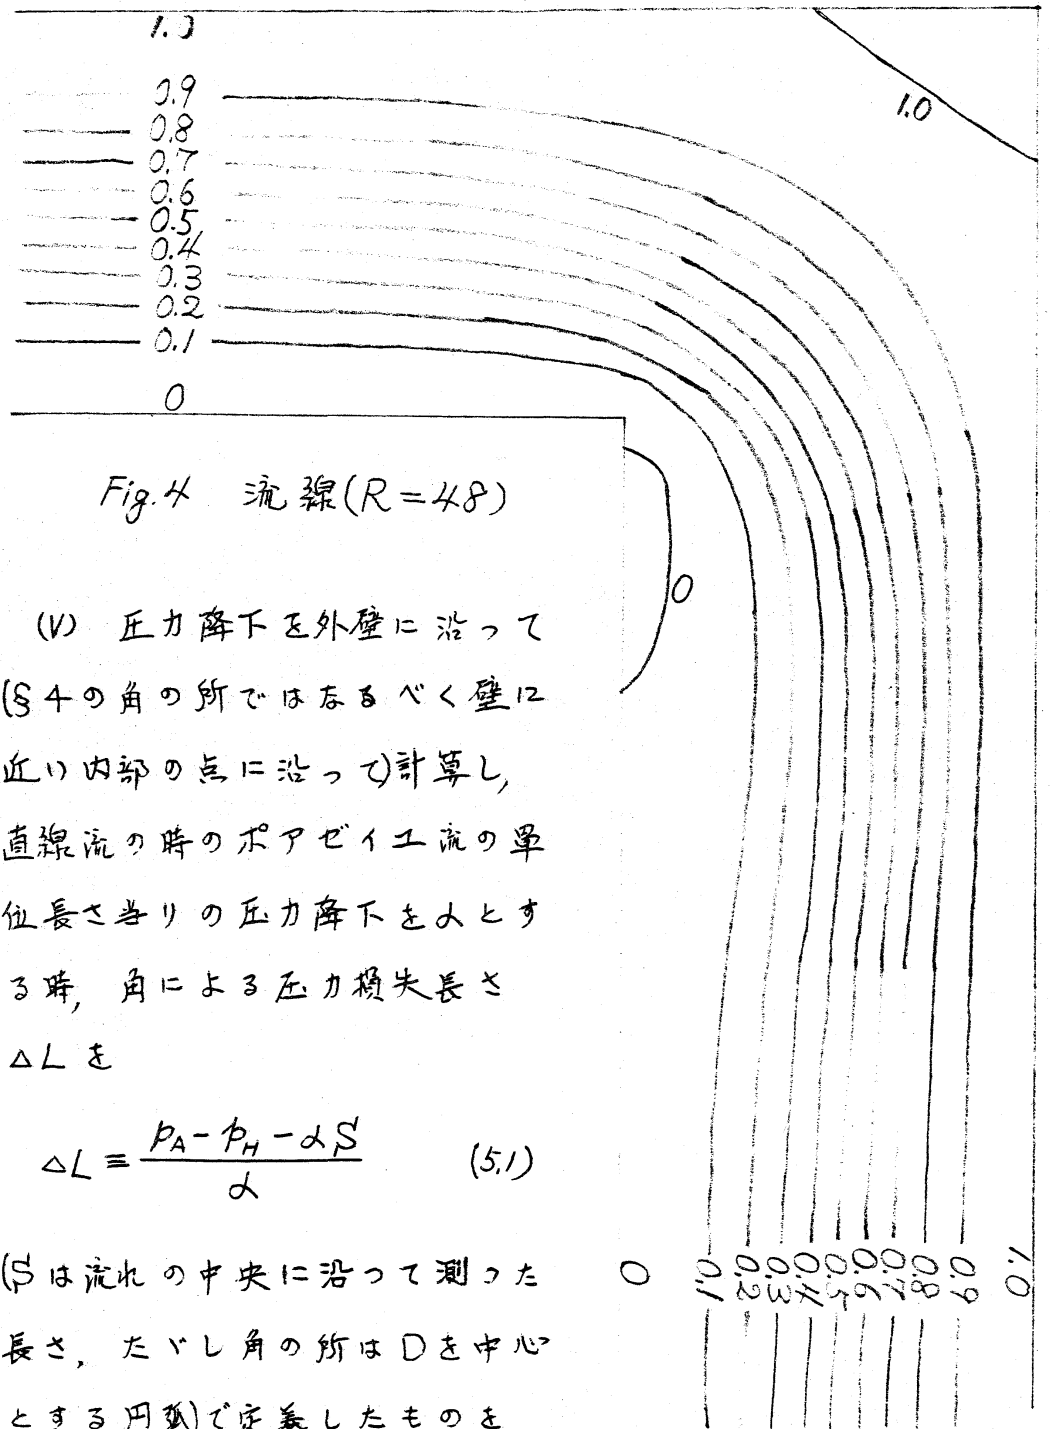 1.0
0.9
0.8
0.7
0.6
0.5
0.4
0.3
0.2
0.1
0
1.0
0
Fig.4 流線(R=48)
(V) 圧力降下を外壁に沿って
(§4の角の所ではなるべく壁に
近い内部の点に沿って)計算し,
直線流の時のポアゼイユ流の単
位長さ当りの圧力降下をαとす
る時, 角による圧力損失長さ
△Lを
△L ≡ (p_A - p_H - αS) / α (5.1)
(Sは流れの中央に沿って測った
長さ, たゞし角の所はDを中心
とする円弧)で定義したものを
0
0.1
0.2
0.3
0.4
0.5
0.6
0.7
0.8
0.9
1.0